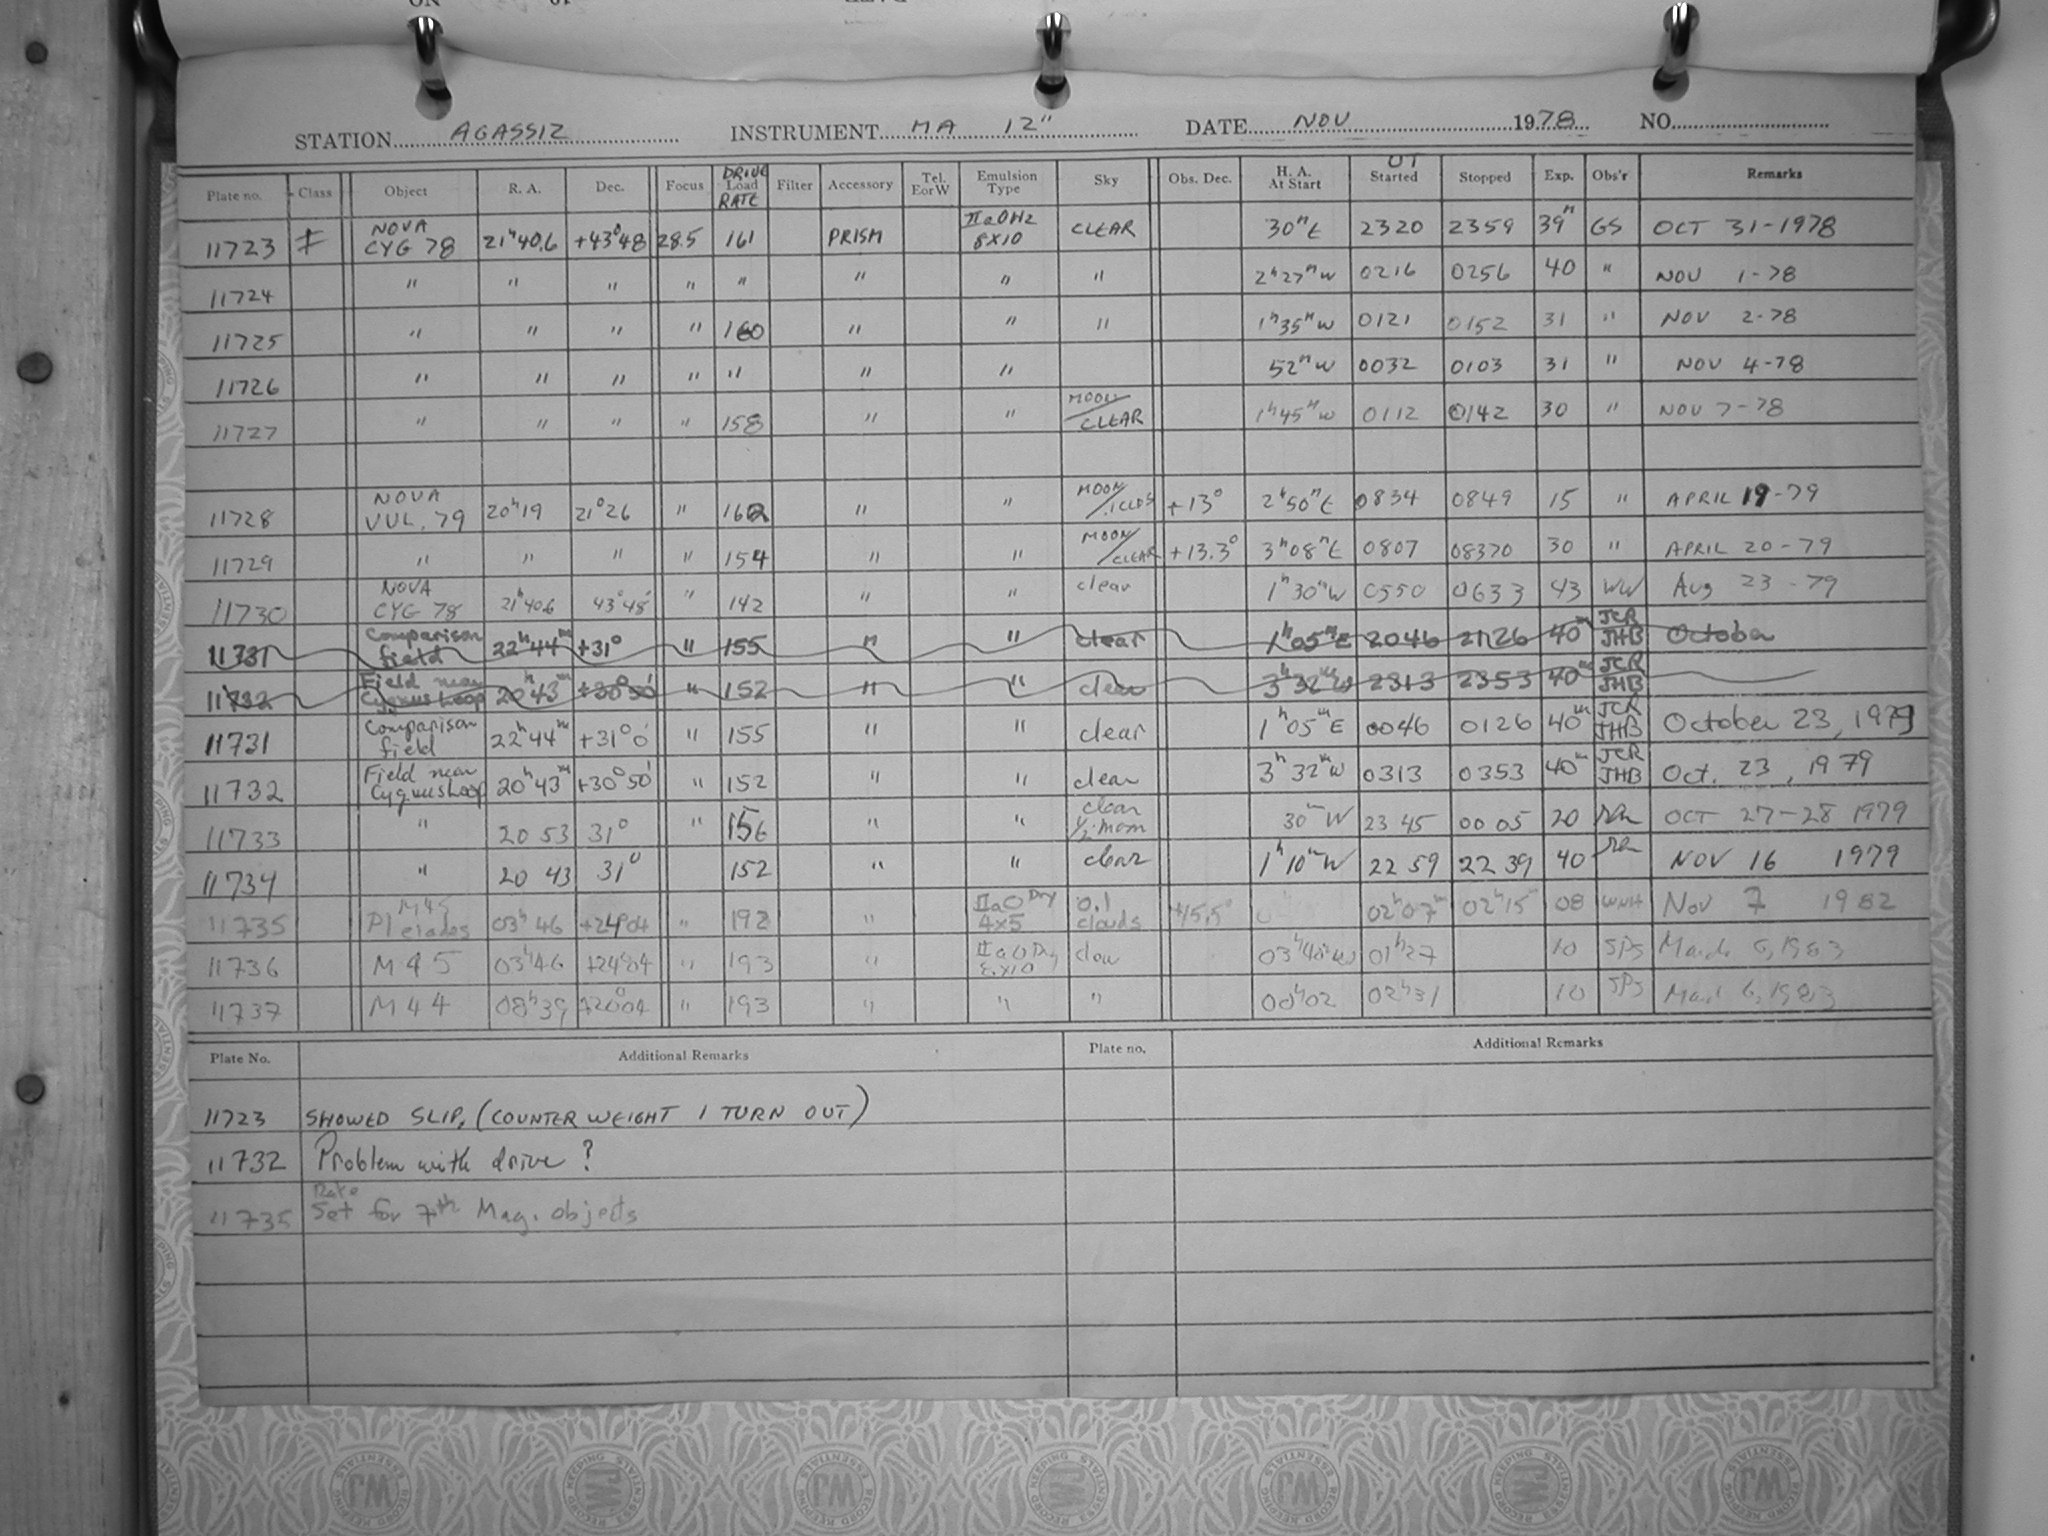 STATION AGASSIZ INSTRUMENT MA 12" DATE NOV 1978 NO.
Plate no. Class Object R. A. Dec. Focus DRIVE Load RATE Filter Accessory Tel. E or W Emulsion Type Sky Obs. Dec. H. A. At Start UT Started Stopped Exp. Obs'r Remarks
11723 F NOVA CYG 78 21ʰ40.6 +43°48 28.5 161 PRISM IIaOH2 8X10 CLEAR 30ᵐE 2320 2359 39ᵐ GS OCT 31-1978
11724 " " " " " " " " 2ʰ27ᵐW 0216 0256 40 " NOV 1-78
11725 " " " " 160 " " " 1ʰ35ᵐW 0121 0152 31 " NOV 2-78
11726 " " " " " " " 52ᵐW 0032 0103 31 " NOV 4-78
11727 " " " " 158 " " MOON/CLEAR 1ʰ45ᵐW 0112 0142 30 " NOV 7-78
11728 NOVA VUL. 79 20ʰ19 21°26 " 162 " " MOON/ +13° 2ʰ50ᵐE 0834 0849 15 " APRIL 19-79
11729 " " " " 154 " " MOON/CLEAR +13.3° 3ʰ08ᵐE 0807 08370 30 " APRIL 20-79
11730 NOVA CYG 78 21ʰ40.6 43°48' " 142 " " clear 1ʰ30ᵐW 0550 0633 43 WW Aug 23-79
11731 Comparison field 22ʰ44ᵐ +31° " 155 " " clear 1ʰ05ᵐE 2046 2126 40ᵐ JCR JHB October
11732 Field near Cygnus Loop 20ʰ43ᵐ +30°50' " 152 " " clear 3ʰ32ᵐW 2313 2353 40ᵐ JCR JHB
11731 Comparison field 22ʰ44ᵐ +31°0' " 155 " " clear 1ʰ05ᵐE 0046 0126 40ᵐ JCR JHB October 23, 1979
11732 Field near Cygnus Loop 20ʰ43ᵐ +30°50' " 152 " " clear 3ʰ32ᵐW 0313 0353 40ᵐ JCR JHB Oct. 23, 1979
11733 " 20 53 31° " 156 " " clear 1/2 moon 30ᵐW 23 45 00 05 20 OCT 27-28 1979
11734 " 20 43 31° 152 " " clear 1ʰ10ᵐW 22 59 22 39 40 NOV 16 1979
11735 M45 Pleiades 03ʰ46 +24°04 " 192 " IIaO Dry 4x5 0.1 clouds +15.5° 02ʰ07ᵐ 02ʰ15ᵐ 08 WNH Nov 7 1982
11736 M45 03ʰ46 +24°04 " 193 " IIaO Dry 8x10 clear 03ʰ40ᵐW 01ʰ27 10 SPS March 6, 1983
11737 M44 08ʰ39 +20°04 " 193 " " " 00ʰ02 02ʰ31 10 SPS March 6, 1983
Plate No. Additional Remarks Plate no. Additional Remarks
11723 SHOWED SLIP, (COUNTER WEIGHT 1 TURN OUT)
11732 Problem with drive?
11735 Rate Set for 7th Mag. objects